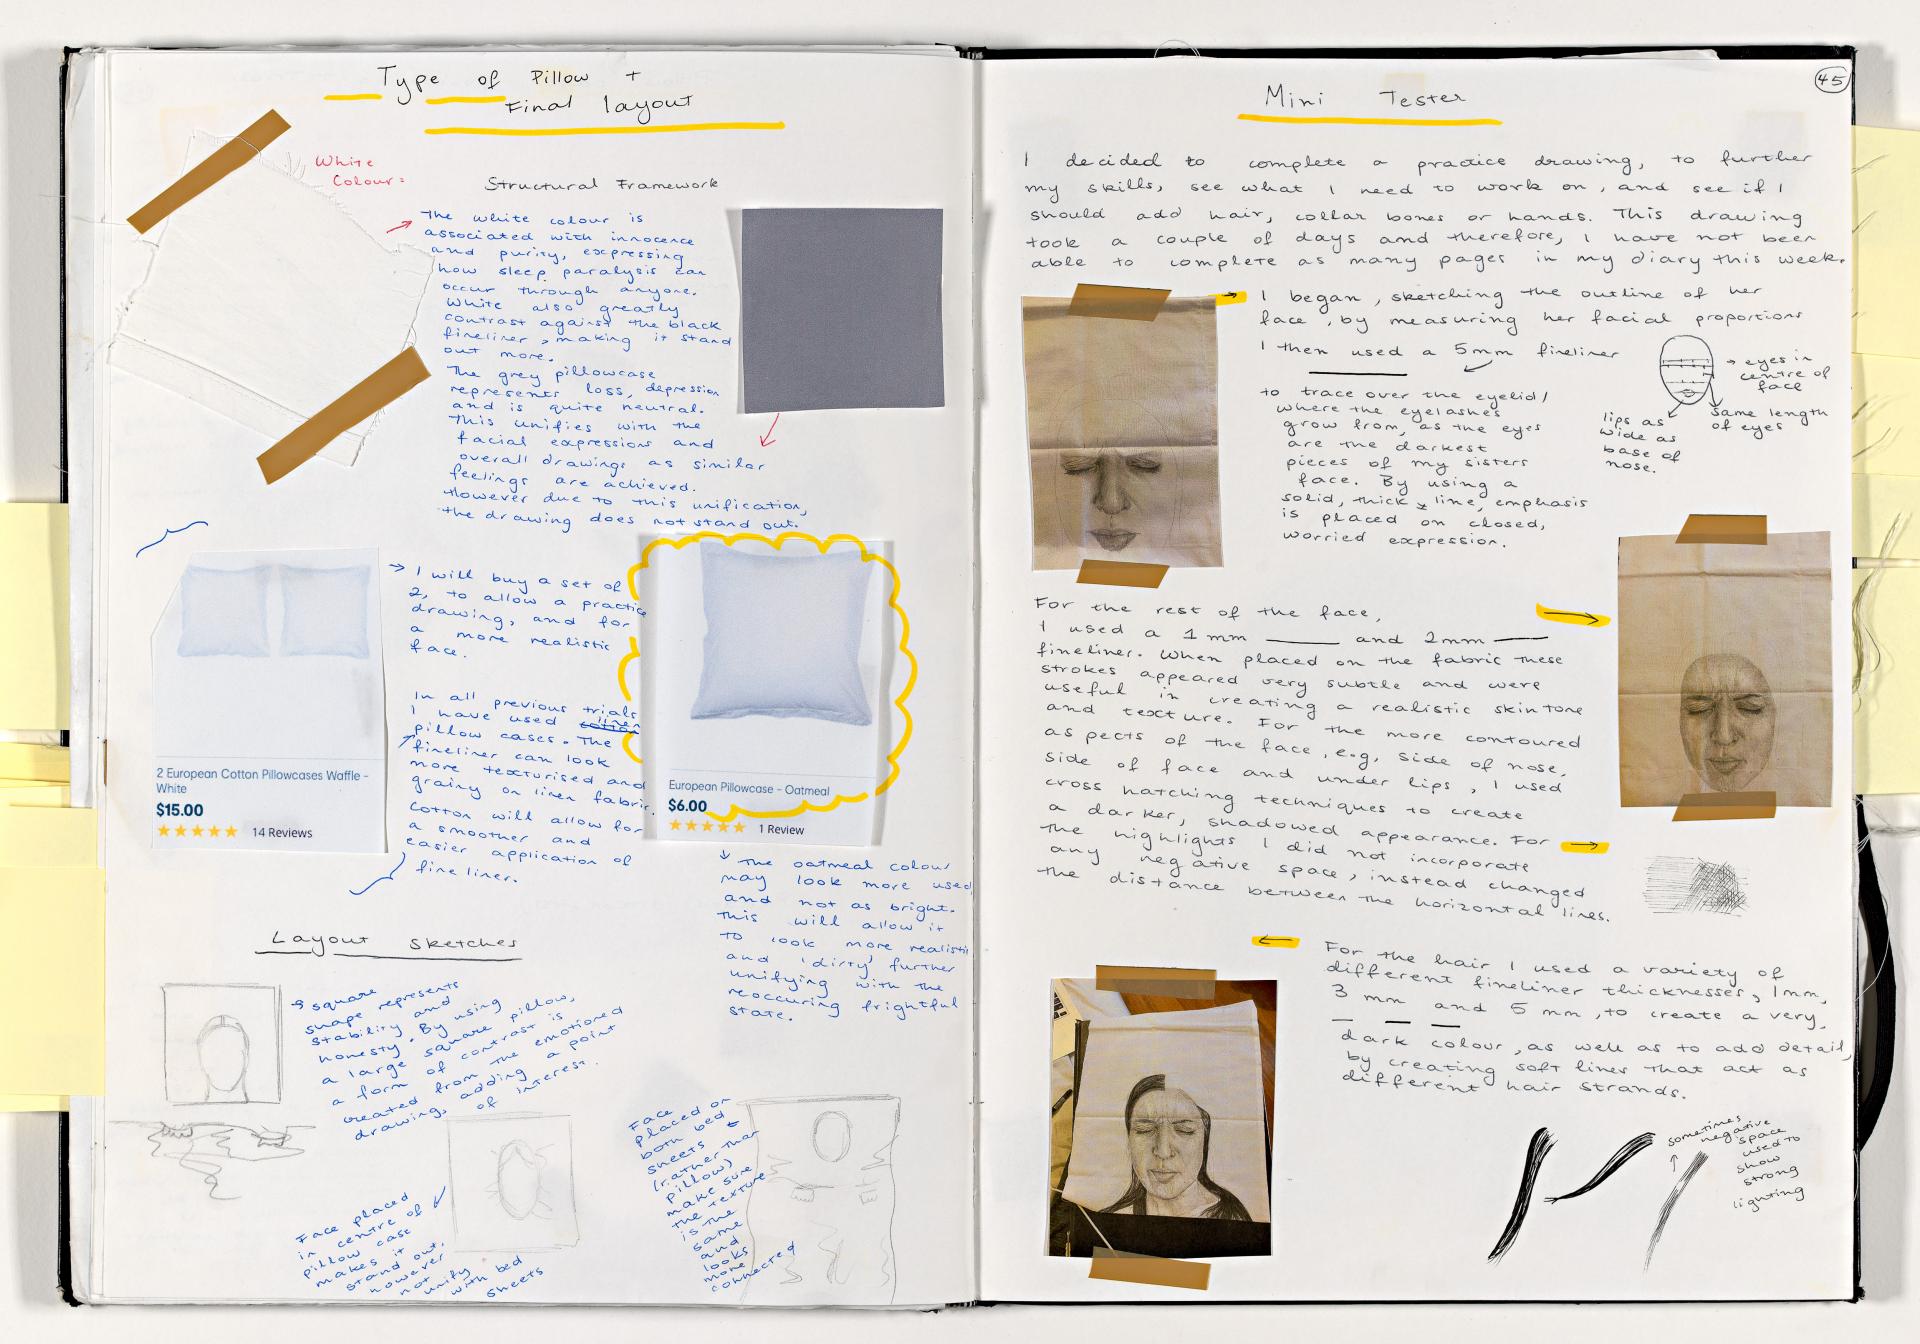 Type of Pillow +
Final layout
White
Colour:
Structural Framework
The white colour is
associated with innocence
and purity, expressing
how sleep paralysis can
occur through anyone.
White also greatly
contrast against the black
fineliner, making it stand
out more.
The grey pillowcase
represents loss, depression
and is quite neutral.
This unifies with the
facial expressions and
overall drawings as similar
feelings are achieved.
However due to this unification,
the drawing does not stand out.
→ I will buy a set of
2, to allow a practice
drawing, and for
a more realistic
face.
In all previous trials
I have used cotton linen
pillow cases. The
fineliner can look
more texturised and
grainy on linen fabric.
Cotton will allow for
a smoother and
easier application of
fineliner.
2 European Cotton Pillowcases Waffle -
White
$15.00
14 Reviews
European Pillowcase - Oatmeal
$6.00
1 Review
The oatmeal colour
may look more used
and not as bright.
This will allow it
to look more realistic
and 'dirty' further
unifying with the
reoccuring frightful
state.
Layout Sketches
→ square
shape represents
stability and
honesty. By using
a large square pillow,
a form of contrast is
created from the emotioned
drawing, adding a point
of interest.
Face placed
in centre of
pillow case
makes it
stand out.
however
not unify
with bed
sheets
Face
placed on
both bed
sheets &
(rather than
pillow)
make sure
the texture
is the
same
and
looks
more
connected
45
Mini Tester
I decided to complete a practice drawing, to further
my skills, see what I need to work on, and see if I
should add hair, collar bones or hands. This drawing
took a couple of days and therefore, I have not been
able to complete as many pages in my diary this week.
I began, sketching the outline of her
face, by measuring her facial proportions
I then used a 5mm fineliner
to trace over the eyelid/
where the eyelashes
grow from, as the eyes
are the darkest
pieces of my sisters
face. By using a
solid, thick line, emphasis
is placed on closed,
worried expression.
→ eyes in
centre of
face
same length
of eyes
lips as
wide as
base of
nose.
For the rest of the face,
I used a 1mm and 2mm
fineliner. When placed on the fabric these
strokes appeared very subtle and were
useful in creating a realistic skin tone
and texture. For the more contoured
aspects of the face, e.g, side of nose,
side of face and under lips, I used
cross hatching techniques to create
a darker, shadowed appearance. For
the highlights I did not incorporate
any negative space, instead changed
the distance between the horizontal lines.
For the hair I used a variety of
different fineliner thicknesses, 1mm,
3 mm and 5 mm, to create a very
dark colour, as well as to add detail,
by creating soft lines that act as
different hair strands.
sometimes,
negative
space
used to
show
strong
lighting